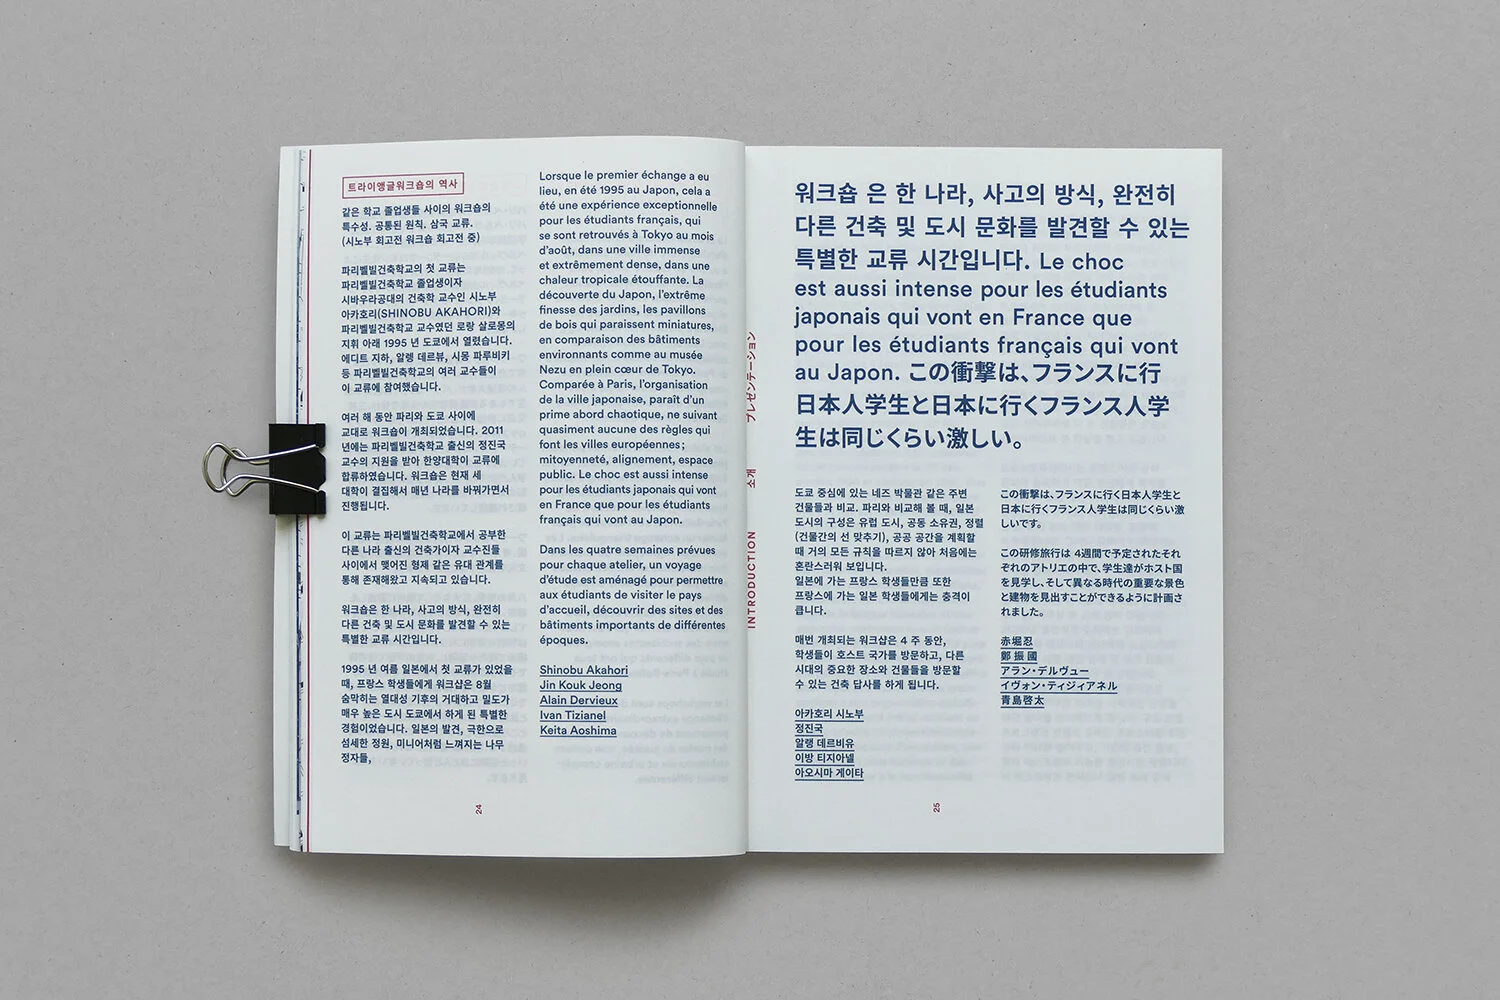 트라이앵글워크숍의 역사
같은 학교 졸업생들 사이의 워크숍의
특수성. 공통된 원칙. 삼국 교류.
(시노부 회고전 워크숍 회고전 중)
파리벨빌건축학교의 첫 교류는
파리벨빌건축학교 졸업생이자
시바우라공대의 건축학 교수인 시노부
아카호리(SHINOBU AKAHORI)와
파리벨빌건축학교 교수였던 로랑 살로몽의
지휘 아래 1995 년 도쿄에서 열렸습니다.
에디트 지하, 알렝 데르뷰, 시몽 파루비키
등 파리벨빌건축학교의 여러 교수들이
이 교류에 참여했습니다.
여러 해 동안 파리와 도쿄 사이에
교대로 워크숍이 개최되었습니다. 2011
년에는 파리벨빌건축학교 출신의 정진국
교수의 지원을 받아 한양대학이 교류에
합류하였습니다. 워크숍은 현재 세
대학이 결집해서 매년 나라를 바꿔가면서
진행됩니다.
이 교류는 파리벨빌건축학교에서 공부한
다른 나라 출신의 건축가이자 교수진들
사이에서 맺어진 형제 같은 유대 관계를
통해 존재해왔고 지속되고 있습니다.
워크숍은 한 나라, 사고의 방식, 완전히
다른 건축 및 도시 문화를 발견할 수 있는
특별한 교류 시간입니다.
1995 년 여름 일본에서 첫 교류가 있었을
때, 프랑스 학생들에게 워크샵은 8월
숨막히는 열대성 기후의 거대하고 밀도가
매우 높은 도시 도쿄에서 하게 된 특별한
경험이었습니다. 일본의 발견, 극한으로
섬세한 정원, 미니어처럼 느껴지는 나무
정자들,
Lorsque le premier échange a eu
lieu, en été 1995 au Japon, cela a
été une expérience exceptionnelle
pour les étudiants français, qui
se sont retrouvés à Tokyo au mois
d’août, dans une ville immense
et extrêmement dense, dans une
chaleur tropicale étouffante. La
découverte du Japon, l’extrême
finesse des jardins, les pavillons
de bois qui paraissent miniatures,
en comparaison des bâtiments
environnants comme au musée
Nezu en plein cœur de Tokyo.
Comparée à Paris, l’organisation
de la ville japonaise, paraît d’un
prime abord chaotique, ne suivant
quasiment aucune des règles qui
font les villes européennes ;
mitoyenneté, alignement, espace
public. Le choc est aussi intense
pour les étudiants japonais qui vont
en France que pour les étudiants
français qui vont au Japon.
Dans les quatre semaines prévues
pour chaque atelier, un voyage
d’étude est aménagé pour permettre
aux étudiants de visiter le pays
d’accueil, découvrir des sites et des
bâtiments importants de différentes
époques.
Shinobu Akahori
Jin Kouk Jeong
Alain Dervieux
Ivan Tizianel
Keita Aoshima
24
プレゼンテーション
소개
INTRODUCTION
워크숍 은 한 나라, 사고의 방식, 완전히
다른 건축 및 도시 문화를 발견할 수 있는
특별한 교류 시간입니다. Le choc
est aussi intense pour les étudiants
japonais qui vont en France que
pour les étudiants français qui vont
au Japon. この衝撃は、フランスに行
日本人学生と日本に行くフランス人学
生は同じくらい激しい。
도쿄 중심에 있는 네즈 박물관 같은 주변
건물들과 비교. 파리와 비교해 볼 때, 일본
도시의 구성은 유럽 도시, 공동 소유권, 정렬
(건물간의 선 맞추기), 공공 공간을 계획할
때 거의 모든 규칙을 따르지 않아 처음에는
혼란스러워 보입니다.
일본에 가는 프랑스 학생들만큼 또한
프랑스에 가는 일본 학생들에게는 충격이
큽니다.
매번 개최되는 워크샵은 4 주 동안,
학생들이 호스트 국가를 방문하고, 다른
시대의 중요한 장소와 건물들을 방문할
수 있는 건축 답사를 하게 됩니다.
아카호리 시노부
정진국
알랭 데르비유
이방 티지아넬
아오시마 게이타
この衝撃は、フランスに行く日本人学生と
日本に行くフランス人学生は同じくらい激
しいです。
この研修旅行は 4週間で予定されたそれ
ぞれのアトリエの中で、学生達がホスト国
を見学し、そして異なる時代の重要な景色
と建物を見出すことができるように計画さ
れました。
赤堀忍
鄭 振 國
アラン・デルヴュー
イヴォン・ティジィアネル
青島啓太
25